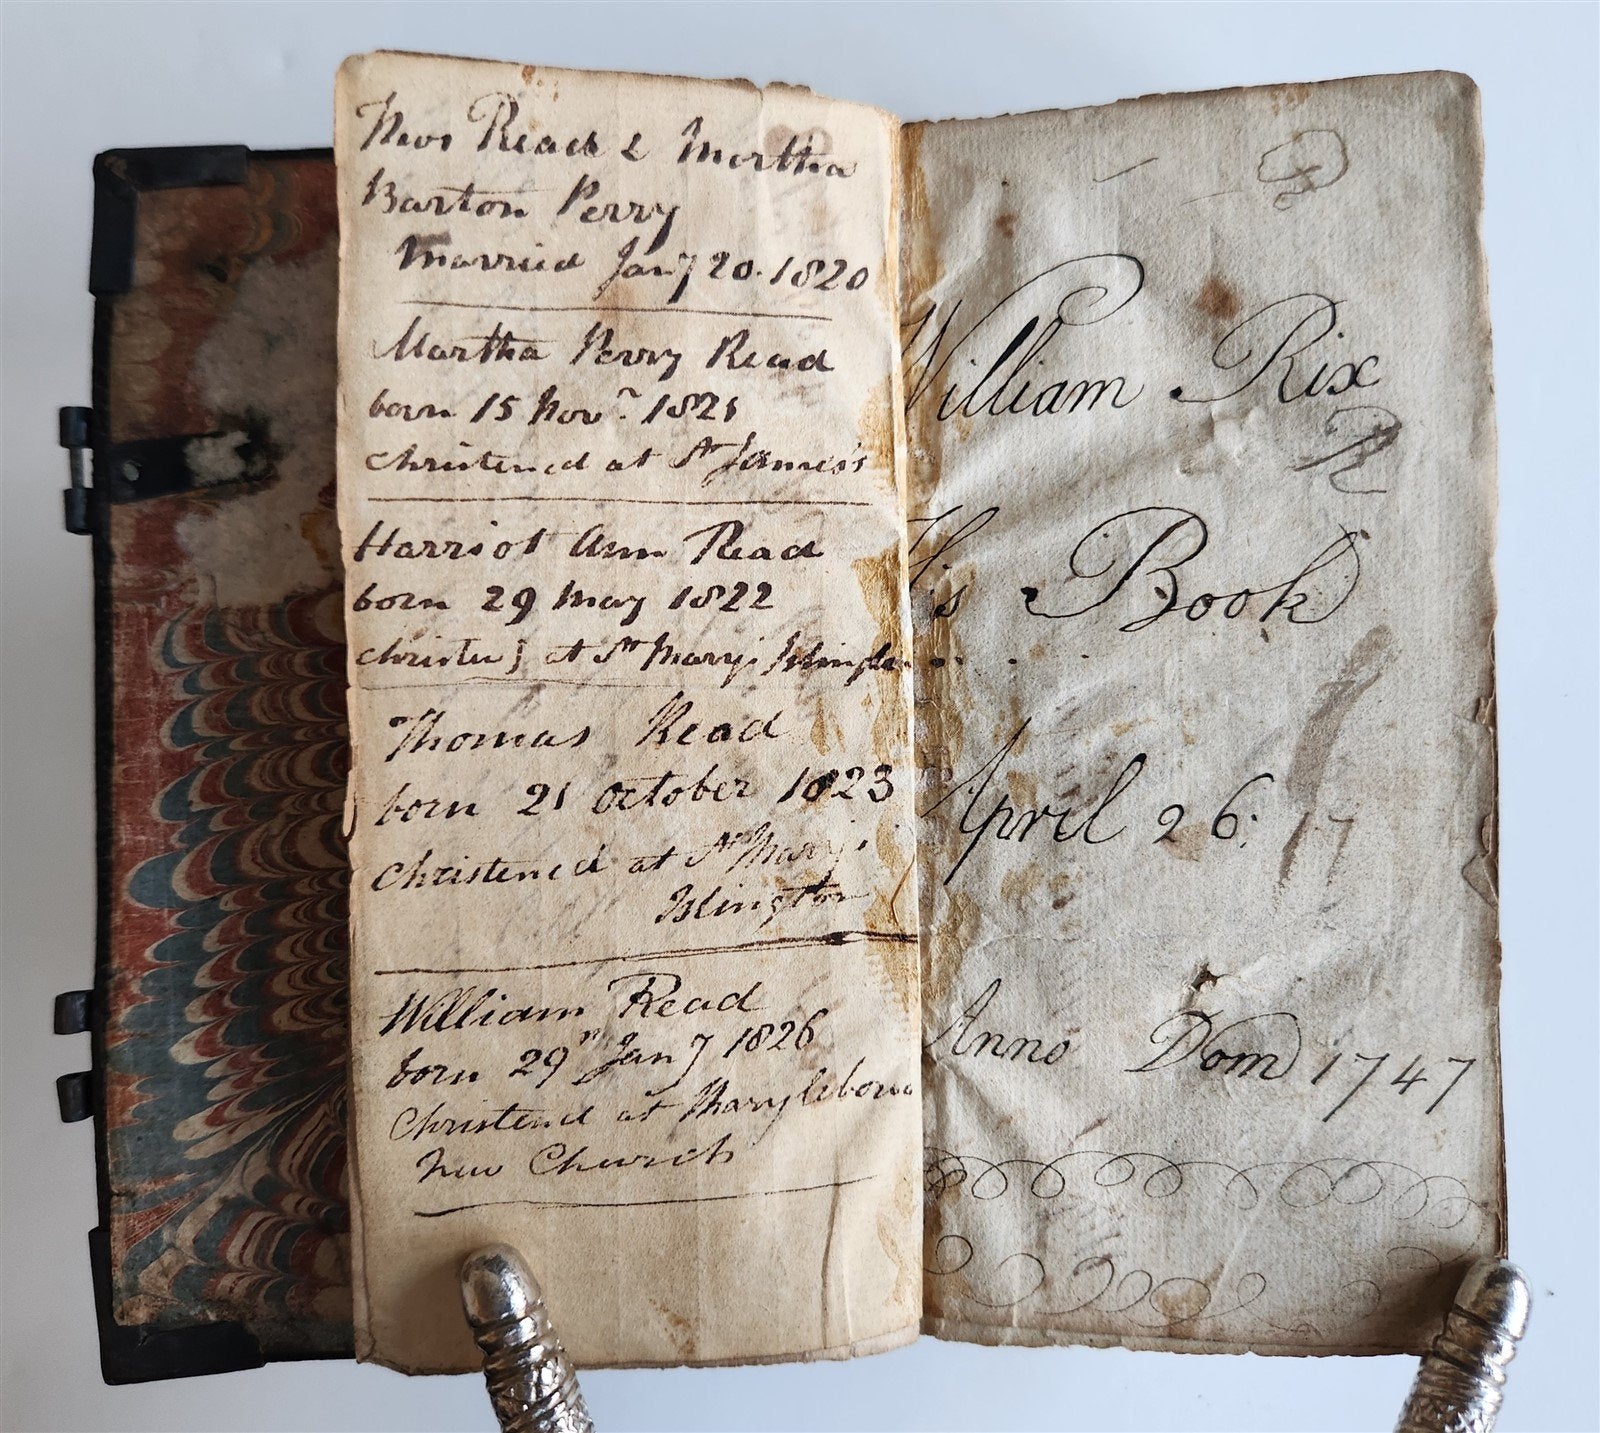 Thos Read & Martha
Barton Perry
Married Jany 20. 1820
Martha Perry Read
born 15 Novr. 1821
christened at St James's
Harriot Ann Read
born 29 May 1822
christend at St Mary's Islington
Thomas Read
born 21 October 1823
Christened at St Mary's
Islington
William Read
born 29th Jany 1826
Christened at Marylebone
New Church
William Rix
R
His Book
April 26: 17
Anno Dom 1747